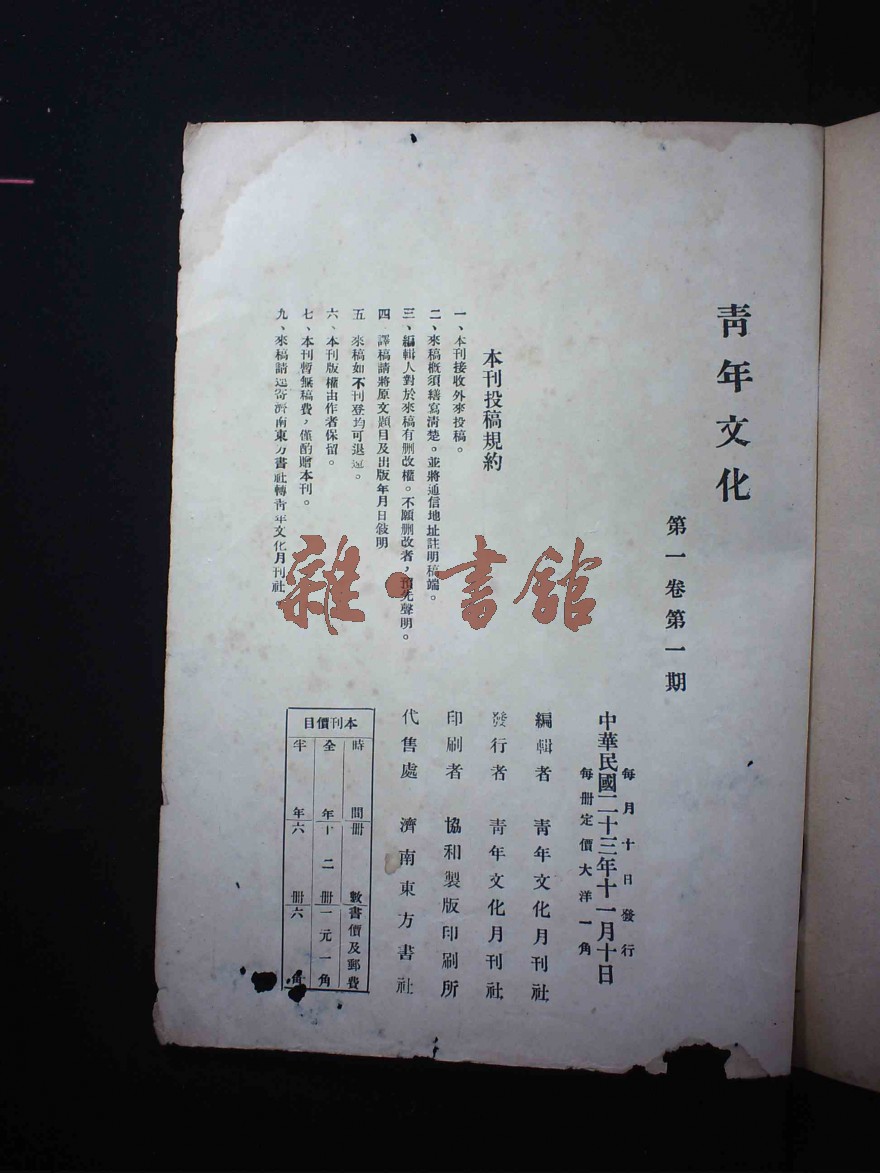 靑年文化
第一卷第一期
本刊投稿規約
一、本刊接收外來投稿。
二、來稿概須繕寫清楚。並將通信地址註明稿端。
三、編輯人對於來稿有删改權。不願删改者，預先聲明。
四　譯稿請將原文題目及出版年月日敍明
五　來稿如不刊登均可退還。
六、本刊版權由作者保留。
七、本刊暫無稿費，僅酌贈本刊。
九、來稿請逕寄濟南東方書社轉靑年文化月刊社
每月十日發行
中華民國二十三年十一月十日
每册定價大洋一角
編輯者　靑年文化月刊社
發行者　靑年文化月刊社
印刷者　協和製版印刷所
代售處　濟南東方書社
本刊價目
時間　册數　書價及郵費
全年　十二册　一元一角
半年　六册　六角
雜·書館